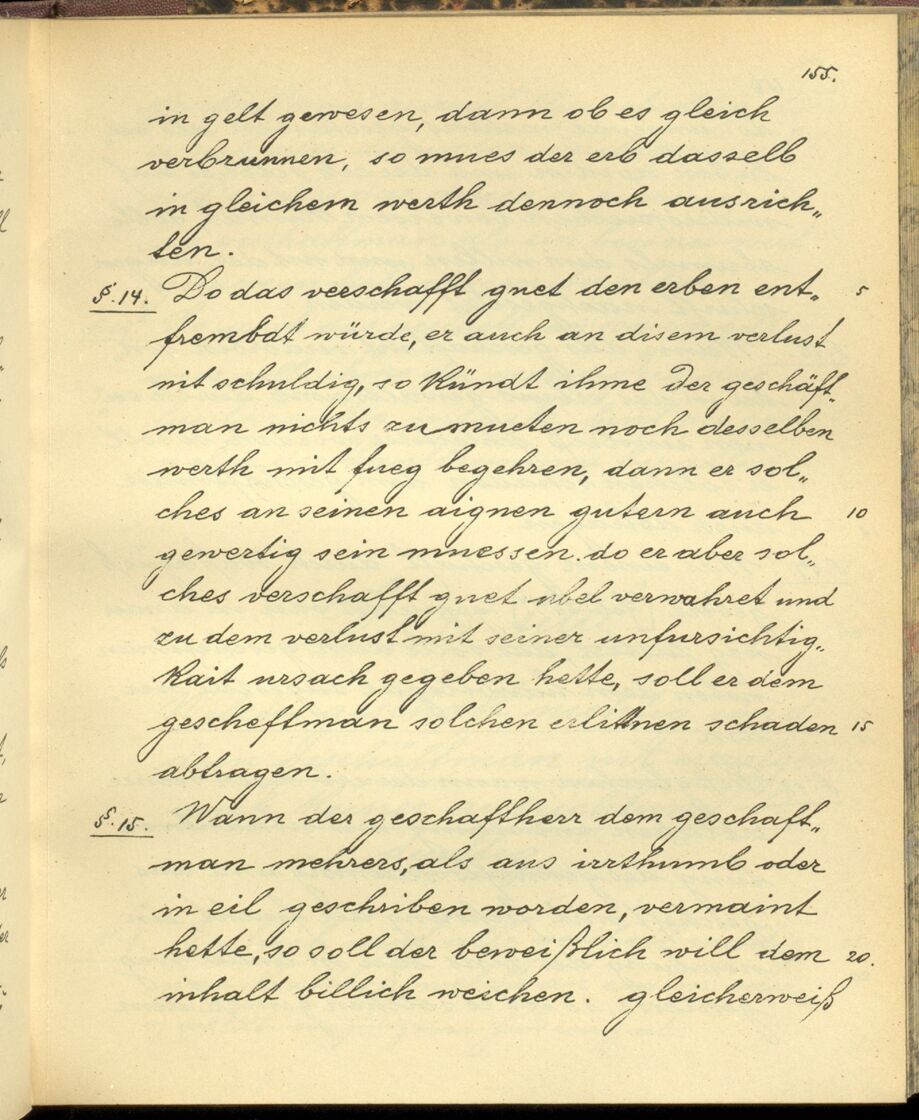 155.
in gelt gewesen, dann ob es gleich
verbrunnen, so mues der erb dasselb
in gleichem werth dennoch ausrich„
ten.
§.14. Do das verschafft guet den erben ent„ 5
frembdt würde, er auch an disem verlust
nit schuldig, so kündt ihme der geschäft„
man nichts zu mueten noch desselben
werth mit fueg begehren, dann er sol„
ches an seinen aignen gutern auch 10
gewertig sein muessen. do er aber sol„
ches verschafft guet ubel verwahret und
zu dem verlust mit seiner unfursichtig„
kait ursach gegeben hette, soll er dem
gescheftman solchen erlittnen schaden 15
abtragen.
§.15. Wann der geschaftherr dem geschaft„
man mehrers, als aus irrthumb oder
in eil geschriben worden, vermaint
hette, so soll der beweißlich will dem 20.
inhalt billich weichen. gleicherweiß